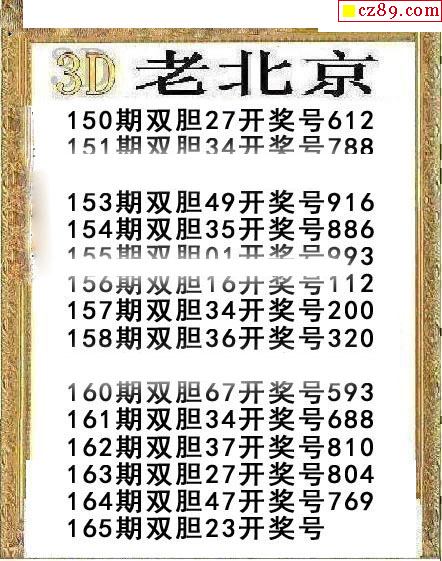 cz89.com
3D 老北京
150期双胆27开奖号612
151期双胆34开奖号788
153期双胆49开奖号916
154期双胆35开奖号886
155期双胆01开奖号993
156期双胆16开奖号112
157期双胆34开奖号200
158期双胆36开奖号320
160期双胆67开奖号593
161期双胆34开奖号688
162期双胆37开奖号810
163期双胆27开奖号804
164期双胆47开奖号769
165期双胆23开奖号